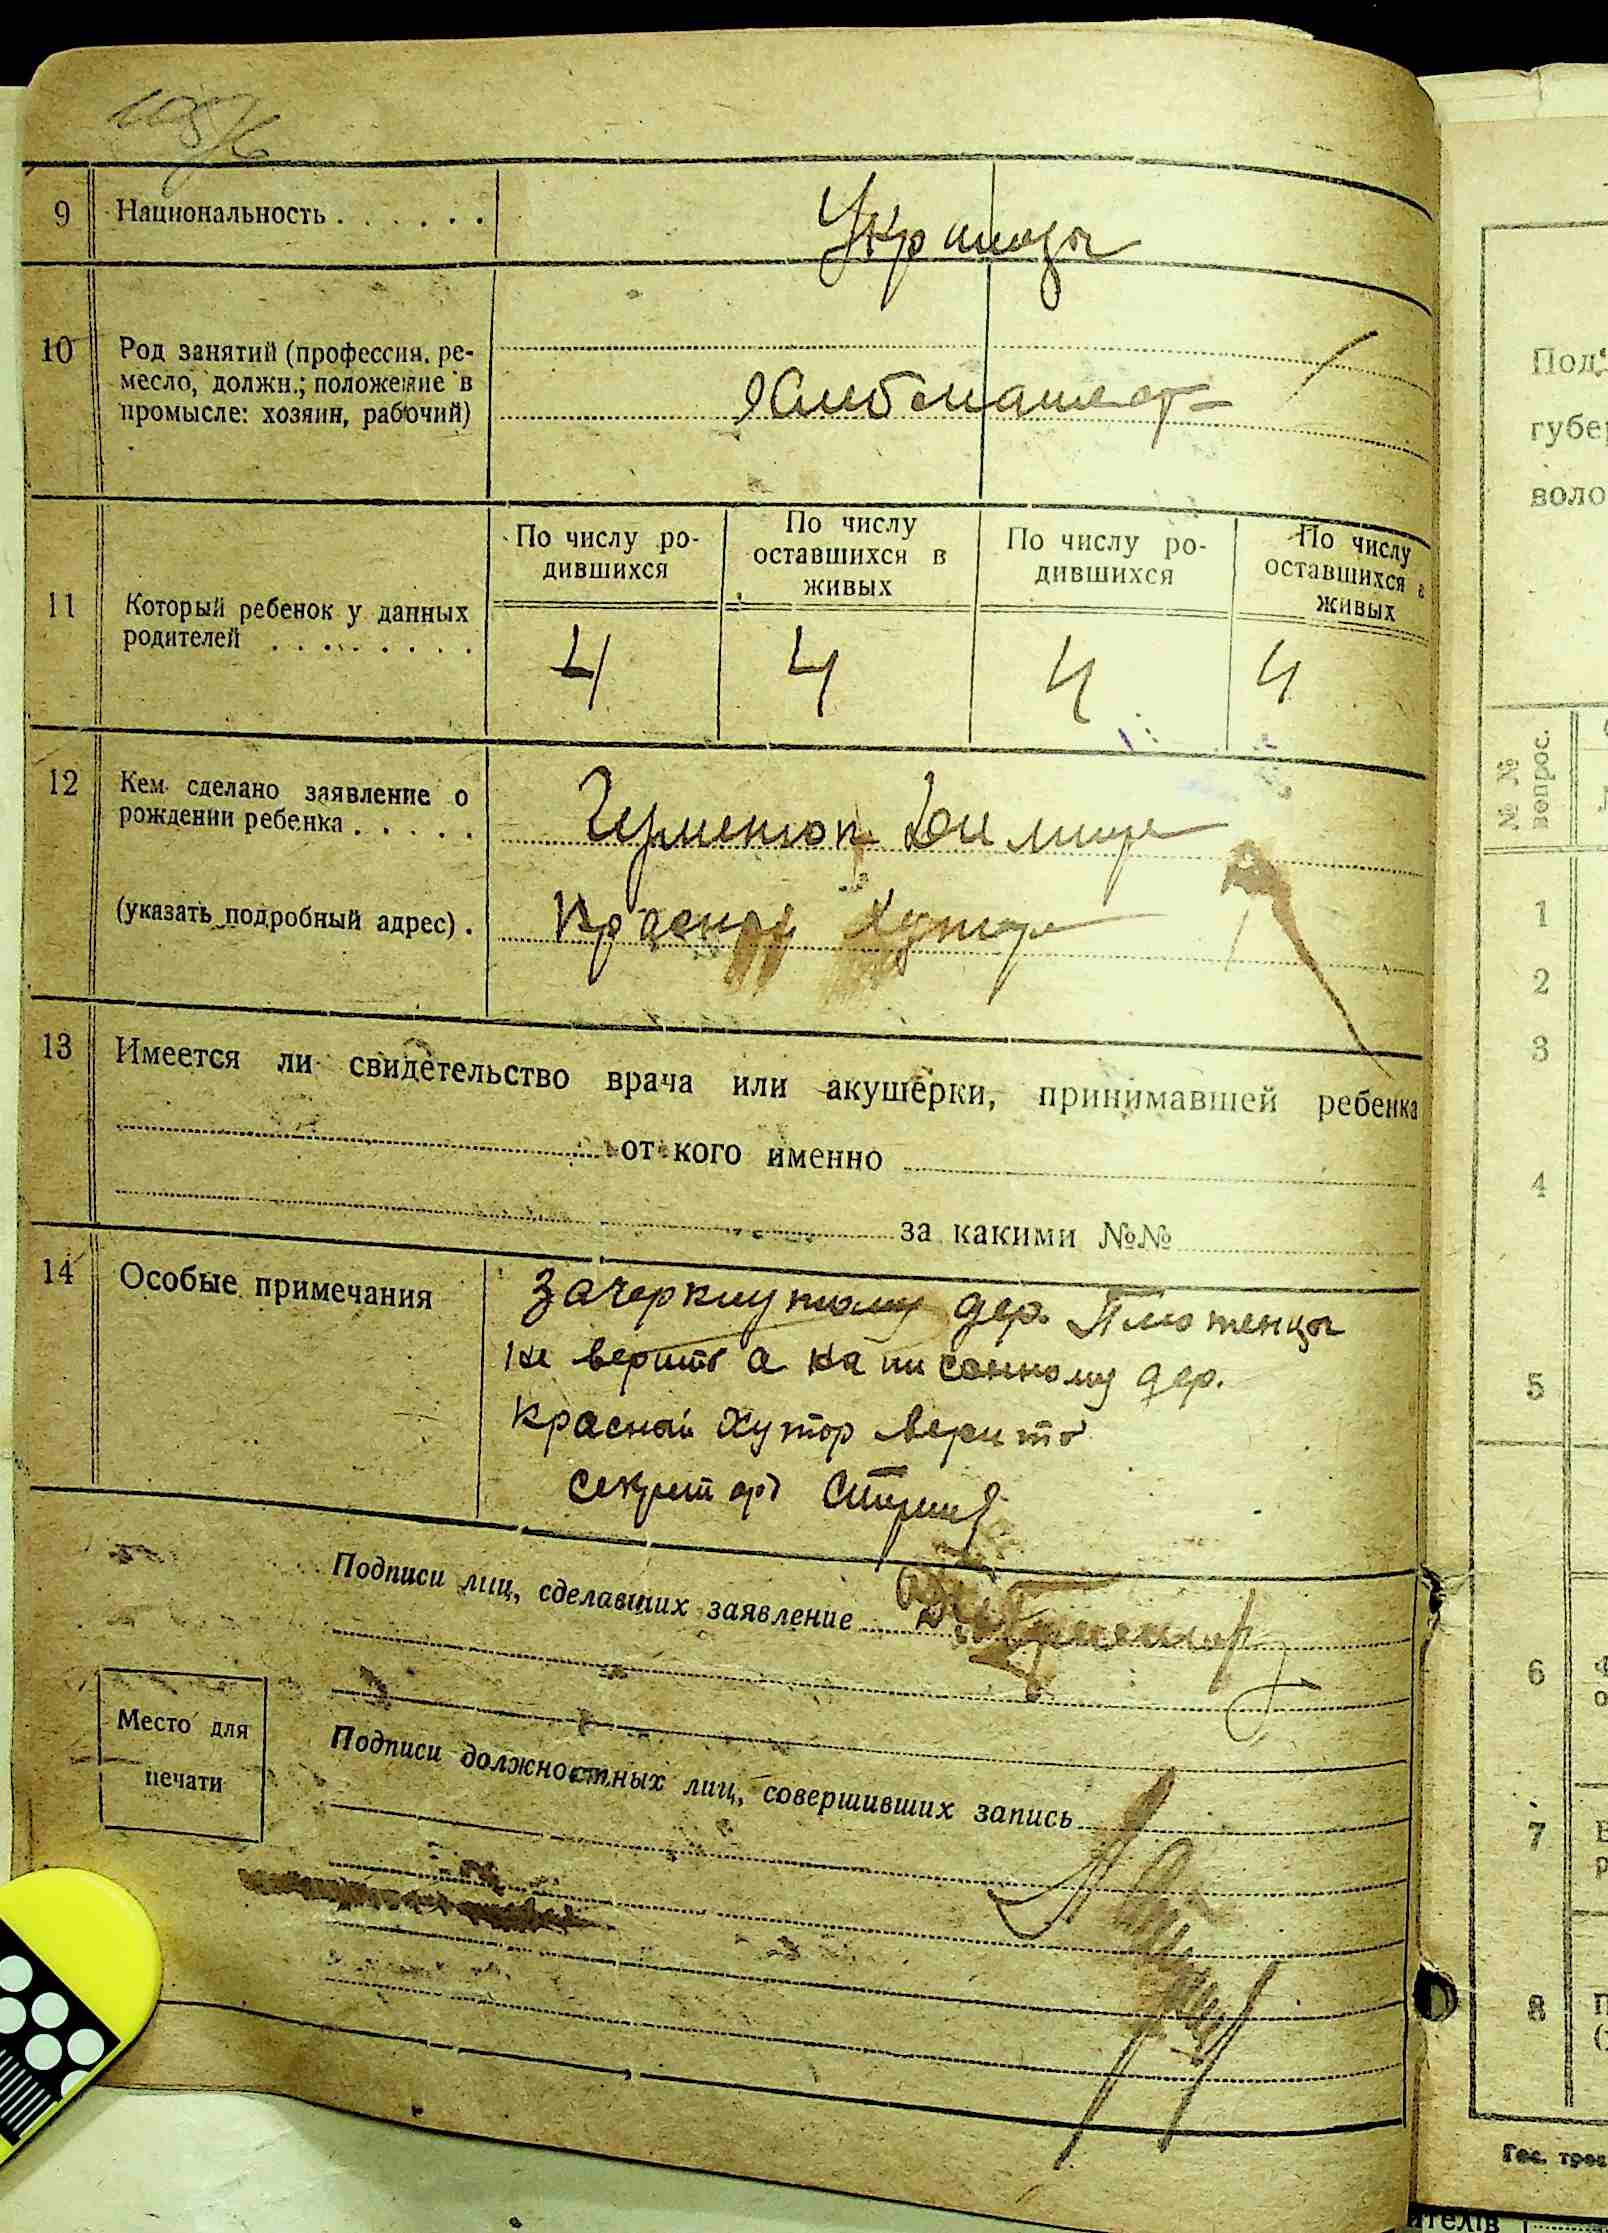 9 Национальность . . . . . . .
Украинцы
10 Род занятий (профессия, ре-
месло, должн.; положение в
промысле: хозяин, рабочий)
Хлебопашест
11 Который ребенок у данных
родителей . . . . . . . .
По числу ро-
дившихся
По числу
оставшихся в
живых
По числу ро-
дившихся
По числу
оставшихся в
живых
4 4 4 4
12 Кем сделано заявление о
рождении ребенка . . . . .
(указать подробный адрес) .
Красный Хутор
13 Имеется ли свидетельство врача или акушерки, принимавшей ребенка
от кого именно
за какими №№
14 Особые примечания
Зачеркнутому дер. Плютенцы
не верить а написанному дер.
Красный Хутор верить
секритарь
Подписи лиц, сделавших заявление
Место для
печати
Подписи должностных лиц, совершивших запись
Под
губер
воло
№ №
вопрос.
1
2
3
4
5
6
7
8
Гос. трес
ителів